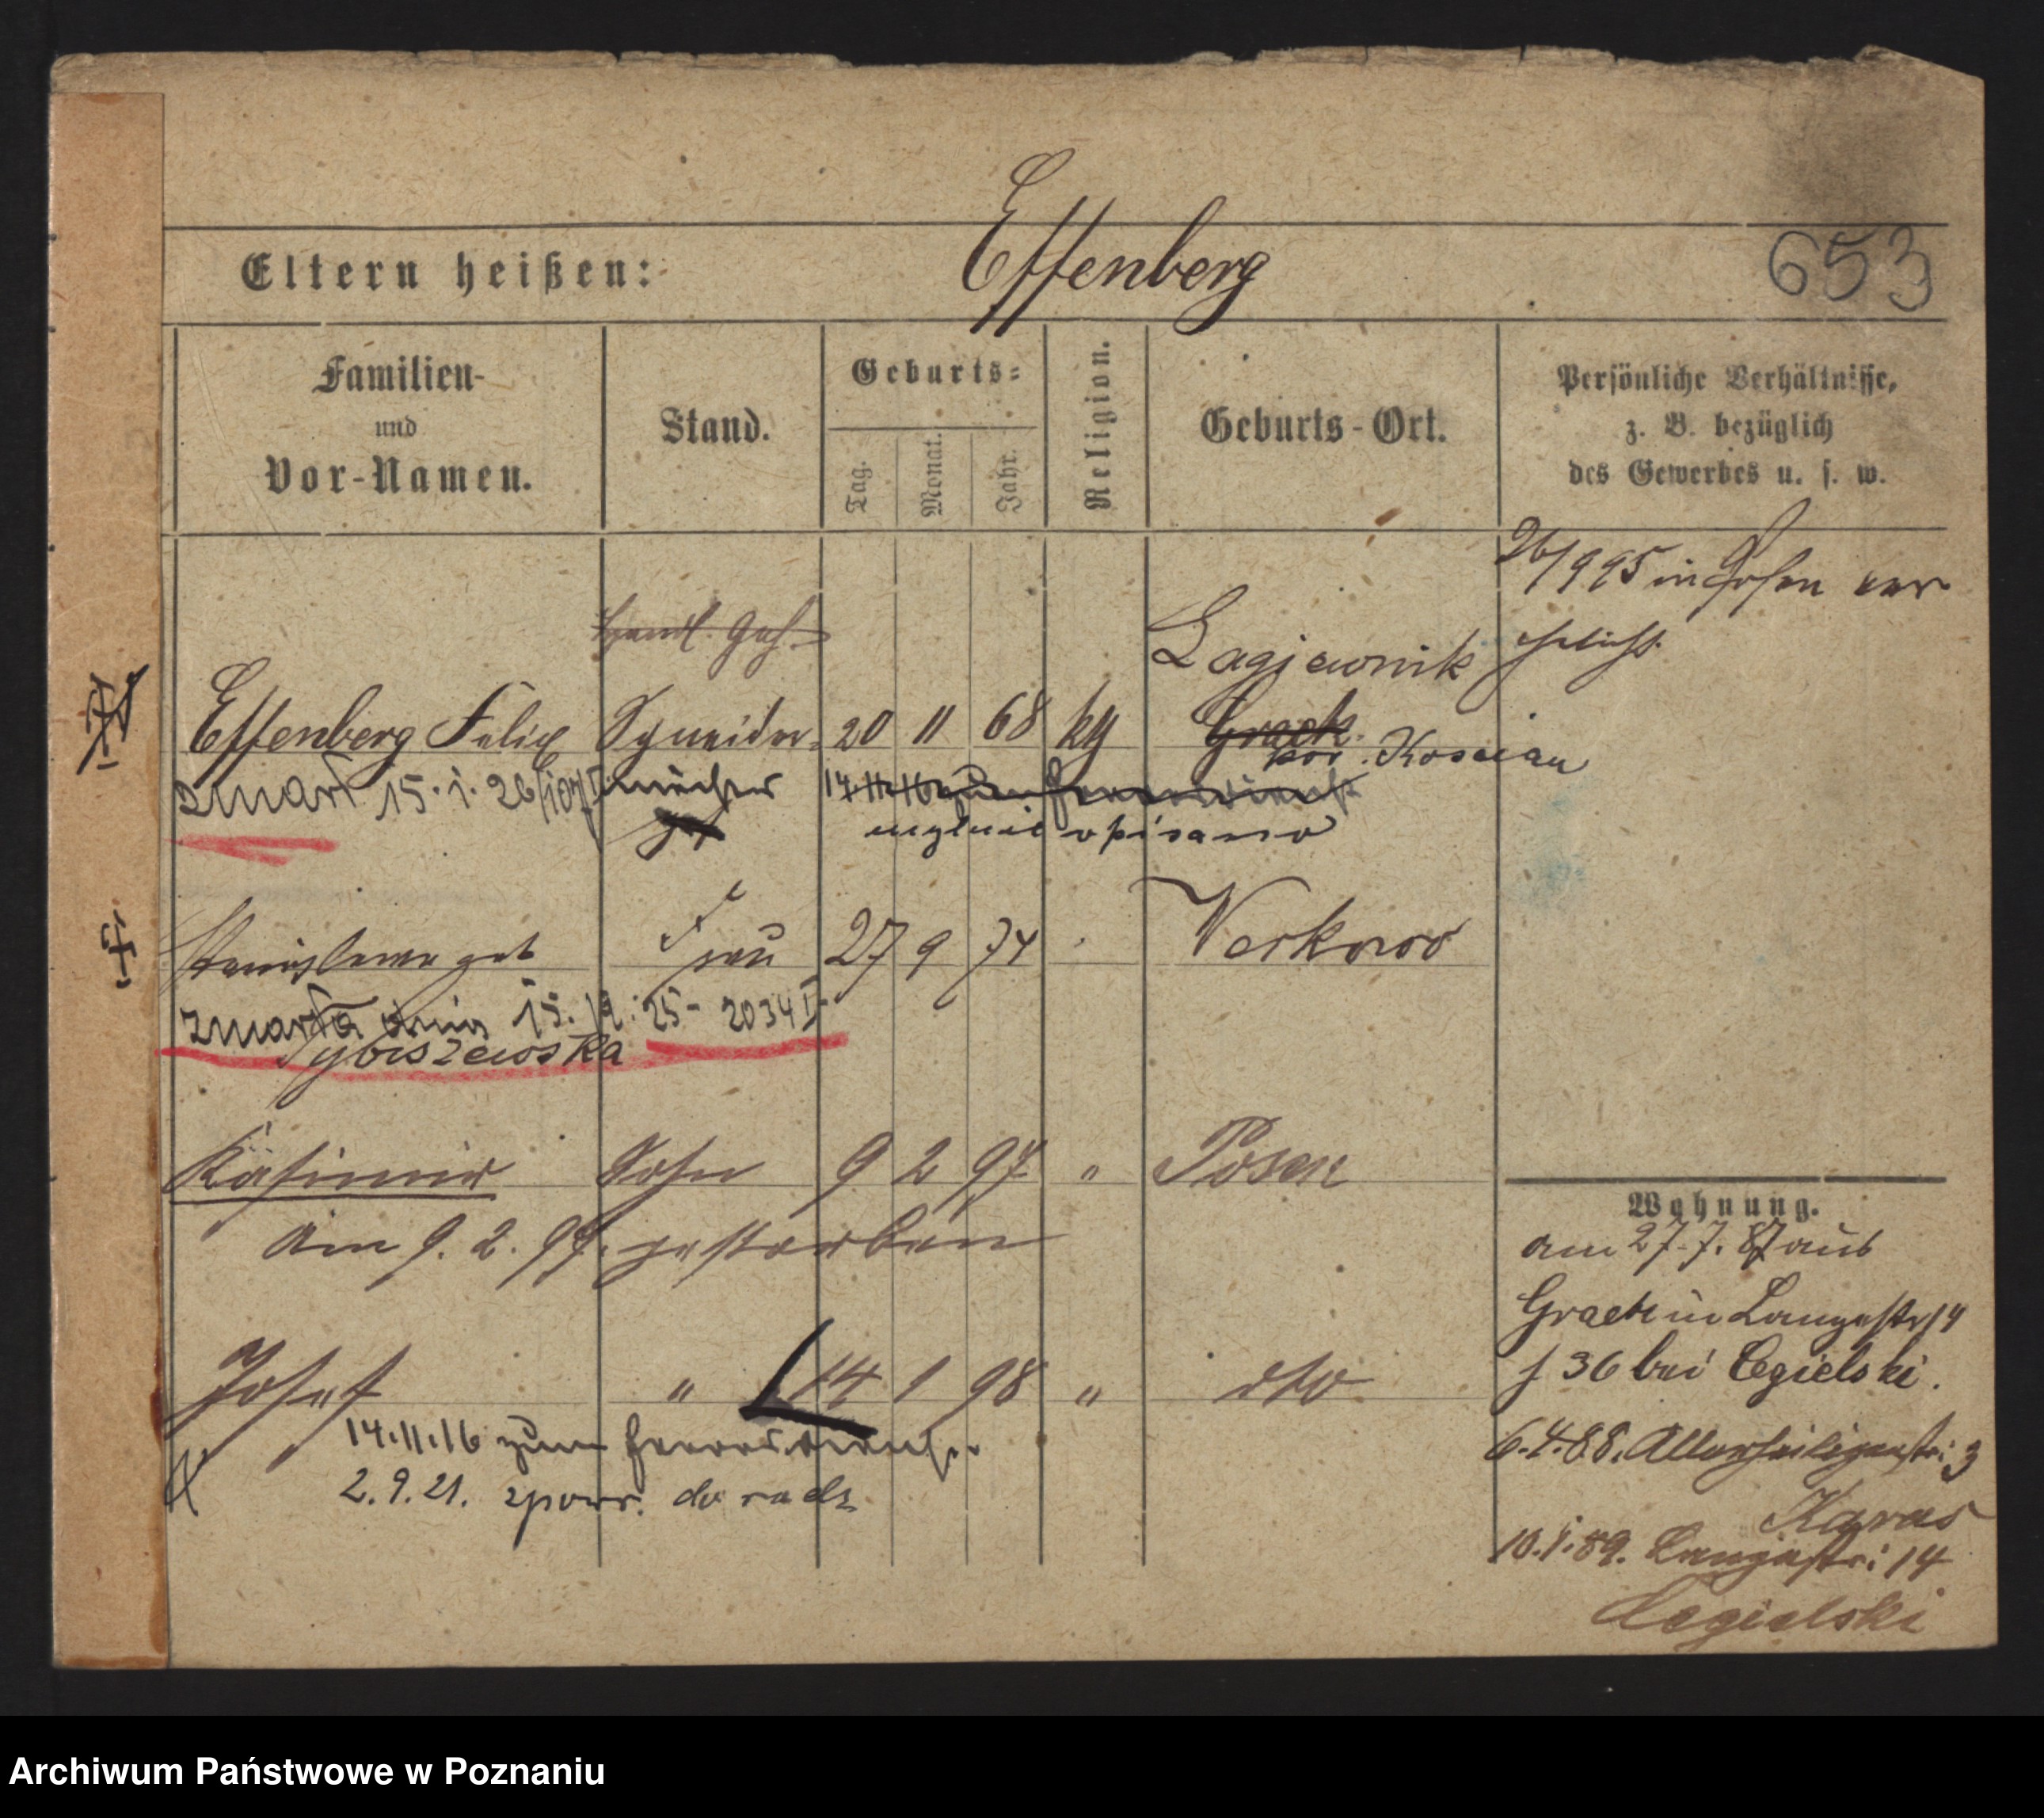 Effenberg
Eltern heißen:
653
Familien-
und
Vor-Namen.
Stand.
Geburts-
Tag.
Monat.
Jahr.
Religion.
Geburts-Ort.
Persönliche Verhältnisse,
z. B. bezüglich
des Gewerbes u. s. w.
26/9 95 in Posen ver
ehelicht.
Lagiewnik
Effenberg Felix 20 11 68 Graetz
Kr. Koscian
zmarł 15. I. 26/107 I
14.11.16 zum Heeresdienst
mylnie opisano
Stanislawa geb Frau 27 9 74 Verkowo
zmarła dnia 15. 12. 25 - 2034 I
Tybiszewska
Kasimir Sohn 9 2 97 " Posen
Am 9. 2. 97. gestorben
Josef " 14 1 98 " dto
14.11.16 zum Heeresdienst.
2.9.21. do
Wohnung.
am 27.7.87 aus
Graetz in Langestr 14
f 36 bei Cegielski.
6.4.88. Allerheiligenstr: 3
Karas
10.1.89. Langestr: 14
Cegielski
Archiwum Państwowe w Poznaniu